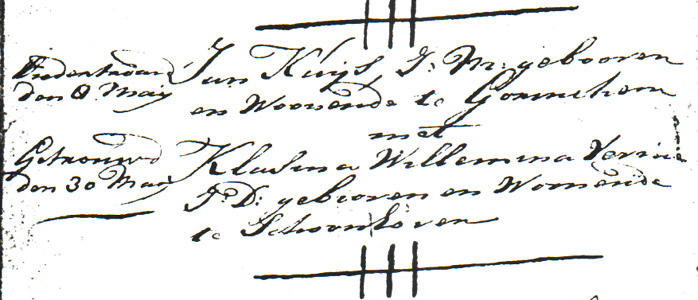 Ondertrouwd
den 8 May
Getrouwd
den 30 May
Jan Kuijs, J: M: gebooren
en Woonende te Gorinchem
met
Klasina Willemina
J: D: gebooren en Woonende
te Schoonhoven